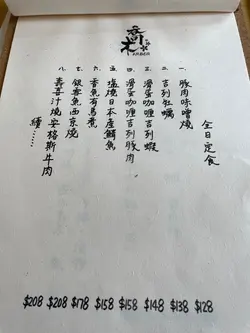 ARBER
全日定食
一. 豚肉味噌燒 $128
二. 吉列牡蠣 $138
三. 滑蛋咖喱吉列蝦 $148
四. 滑蛋咖喱吉列豚肉 $158
五. 塩燒日本產鯖魚 $158
六. 香魚有馬煮 $178
七. 銀雪魚西京燒 $208
八. 壽喜汁燒安格斯牛肉 $208
續......